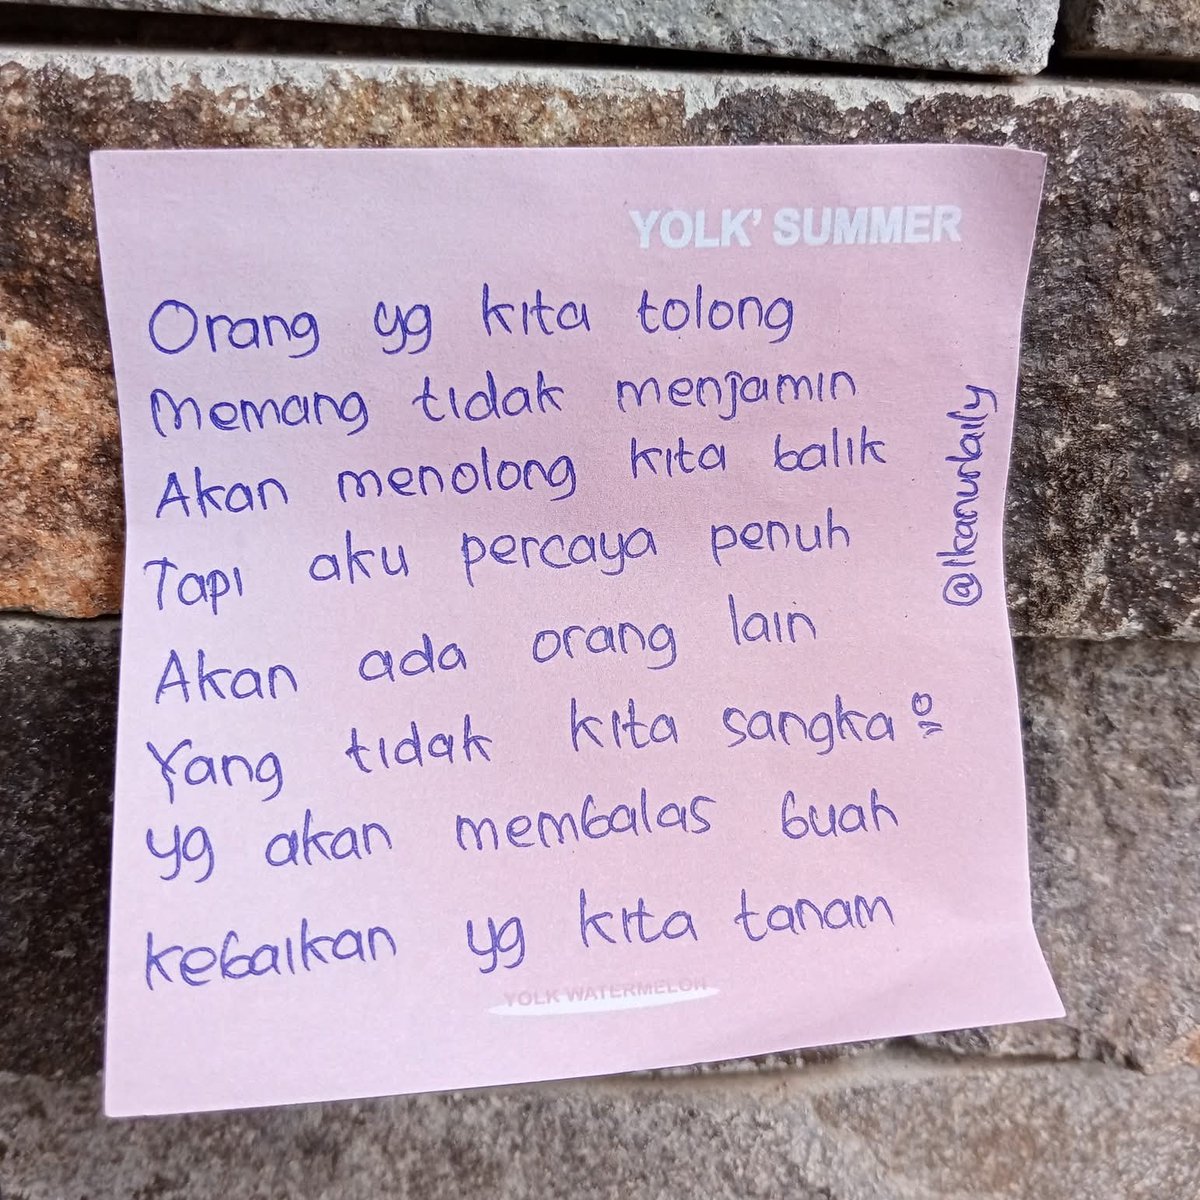 YOLK' SUMMER
Orang yg kita tolong
Memang tidak menjamin
Akan menolong kita balik
Tapi aku percaya penuh
Akan ada orang lain
Yang tidak kita sangka
yg akan membalas buah
kebaikan yg kita tanam
@Ikanurlaily
YOLK WATERMELON